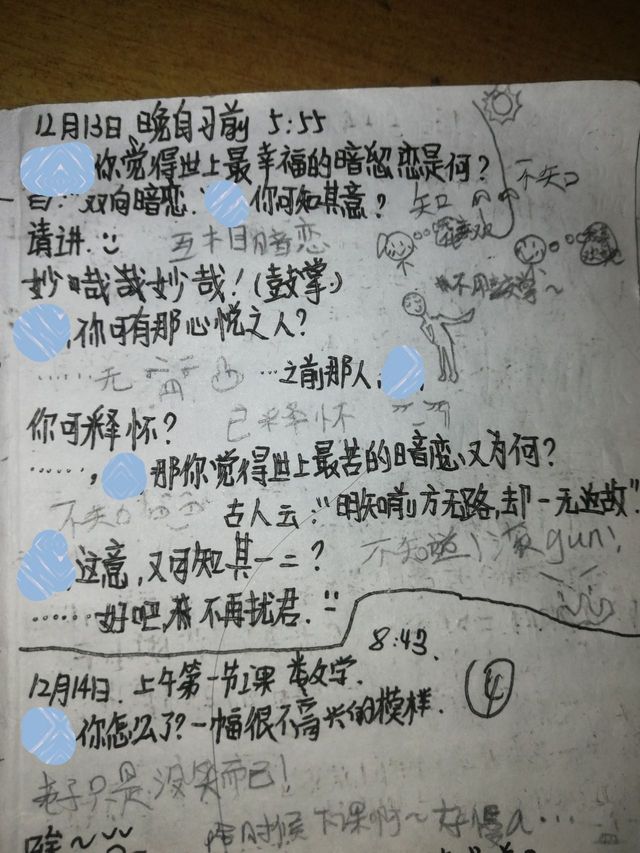 12月13日,晚自习前 5:55
你觉得世上最幸福的暗恋是何?
曰:“双向暗恋.” 你可知其意?
不矢口
矢口
请讲. 互木目暗恋
喜欢
妙哉哉妙哉!(鼓掌.)
不用鼓掌~
,你可有那心悦之人?
……无 …之前那人,
你可释怀? 已释怀
……, 那你觉得世上最苦的暗恋,又为何?
不矢口 古人云:“明知前方无路,却一无返故”.
这意,又可知其一二? 不知啦!滚gun!
……好吧, 不再扰君.
8:43.
12月14日.上午第一节课 数学.
4
你怎么了?一幅很不高兴的模样.
老子只是没笑而已!
唉~ 啥时候下课啊~好慢a…